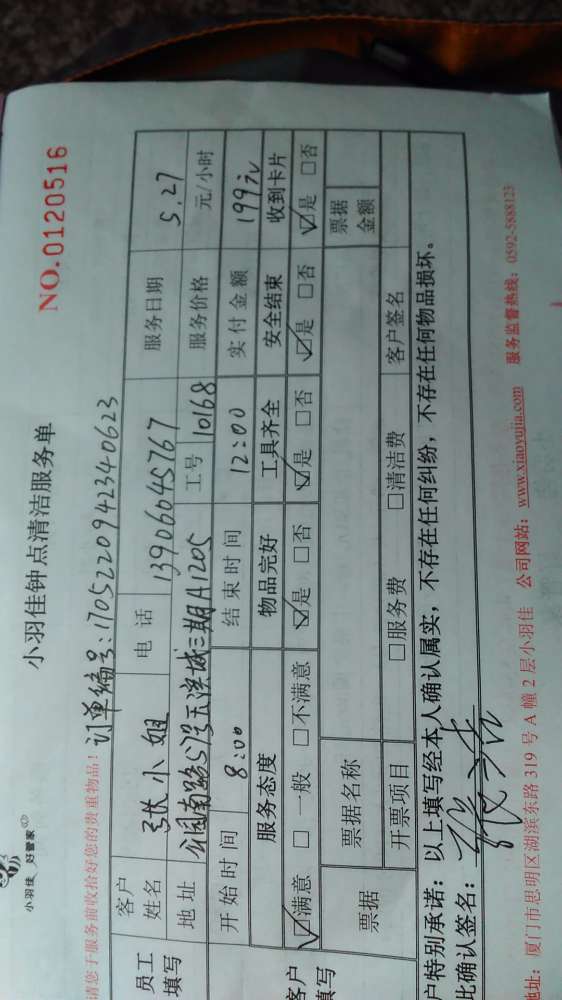 小羽佳 好管家
小羽佳钟点清洁服务单
NO.0120516
请您于服务前收拾好您的贵重物品！
订单编号:1705220942340623
员工填写
客户姓名 张小姐 电话 13906045767 服务日期 5.27
地址 玉滨城三期A1205 工号 10168 服务价格 元/小时
开始时间 8:00 结束时间 12:00 实付金额 199元
服务态度 物品完好 工具齐全 安全结束 收到卡片
☑满意 □一般 □不满意 ☑是 □否 ☑是 □否 ☑是 □否 ☑是 □否
客户填写
票据 票据名称 票据金额
开票项目 □服务费 □清洁费 客户签名
户特别承诺：以上填写经本人确认属实，不存在任何纠纷，不存在任何物品损坏。
此确认签名：
地址：厦门市思明区湖滨东路319号A幢2层小羽佳 公司网站：www.xiaoyujia.com 服务监督热线：0592-5888123